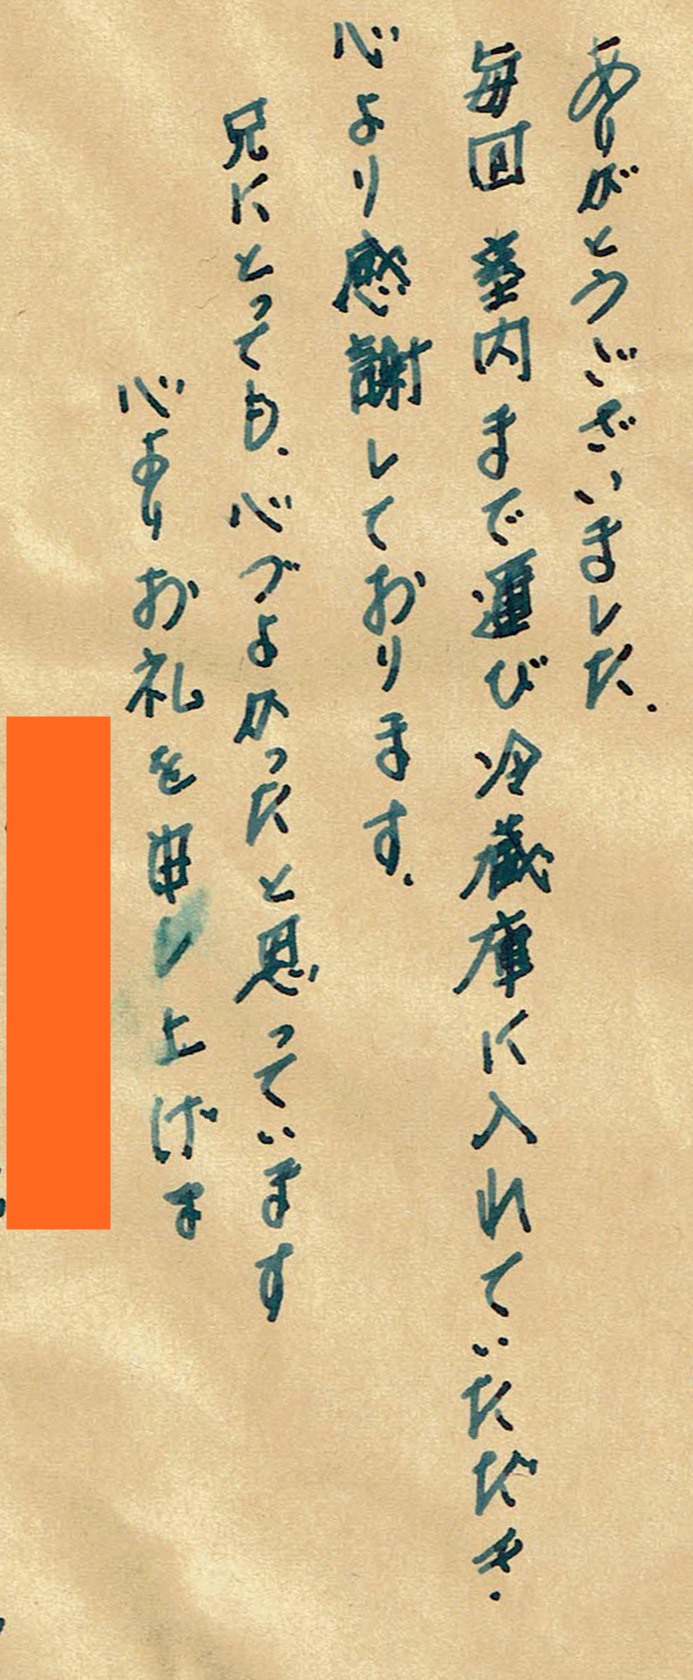 ありがとうございました.
毎回室内まで運び冷蔵庫に入れていただき.
心より感謝しております.
兄にとっても、心づよかったと思っています
心よりお礼を申し上げま